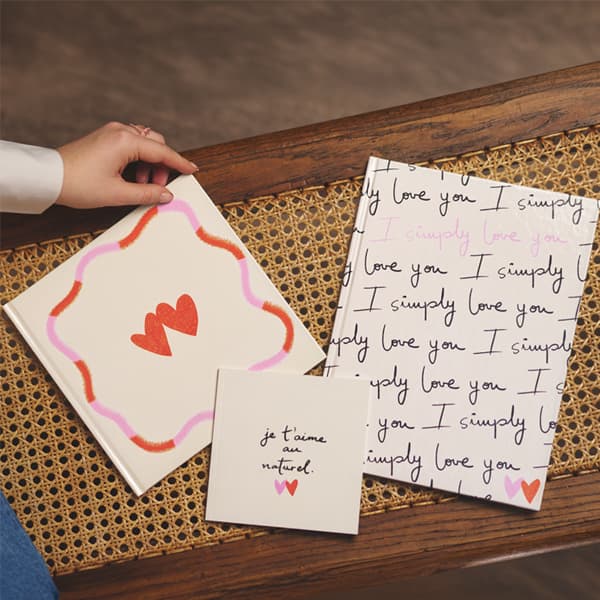 ly love you I simply
I simply love you
love you I simply
I simply love you I
ply love you I simply
mply love you I s
you I simply lo
imply love you I
je t'aime
au
naturel.